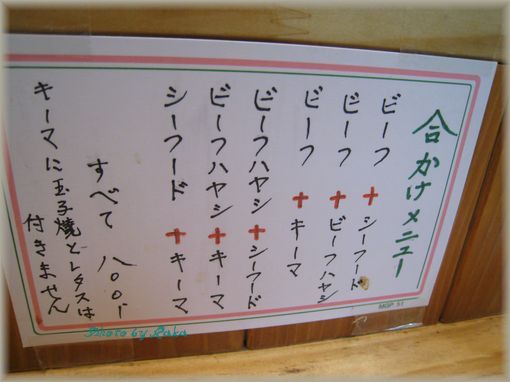 合かけメニュー
ビーフ + シーフード
ビーフ + ビーフハヤシ
ビーフ + キーマ
ビーフハヤシ + シーフード
ビーフハヤシ + キーマ
シーフード + キーマ
すべて 八〇〇.-
キーマに玉子焼とレタスは
付きません
MGP-51
Photo by.Raka